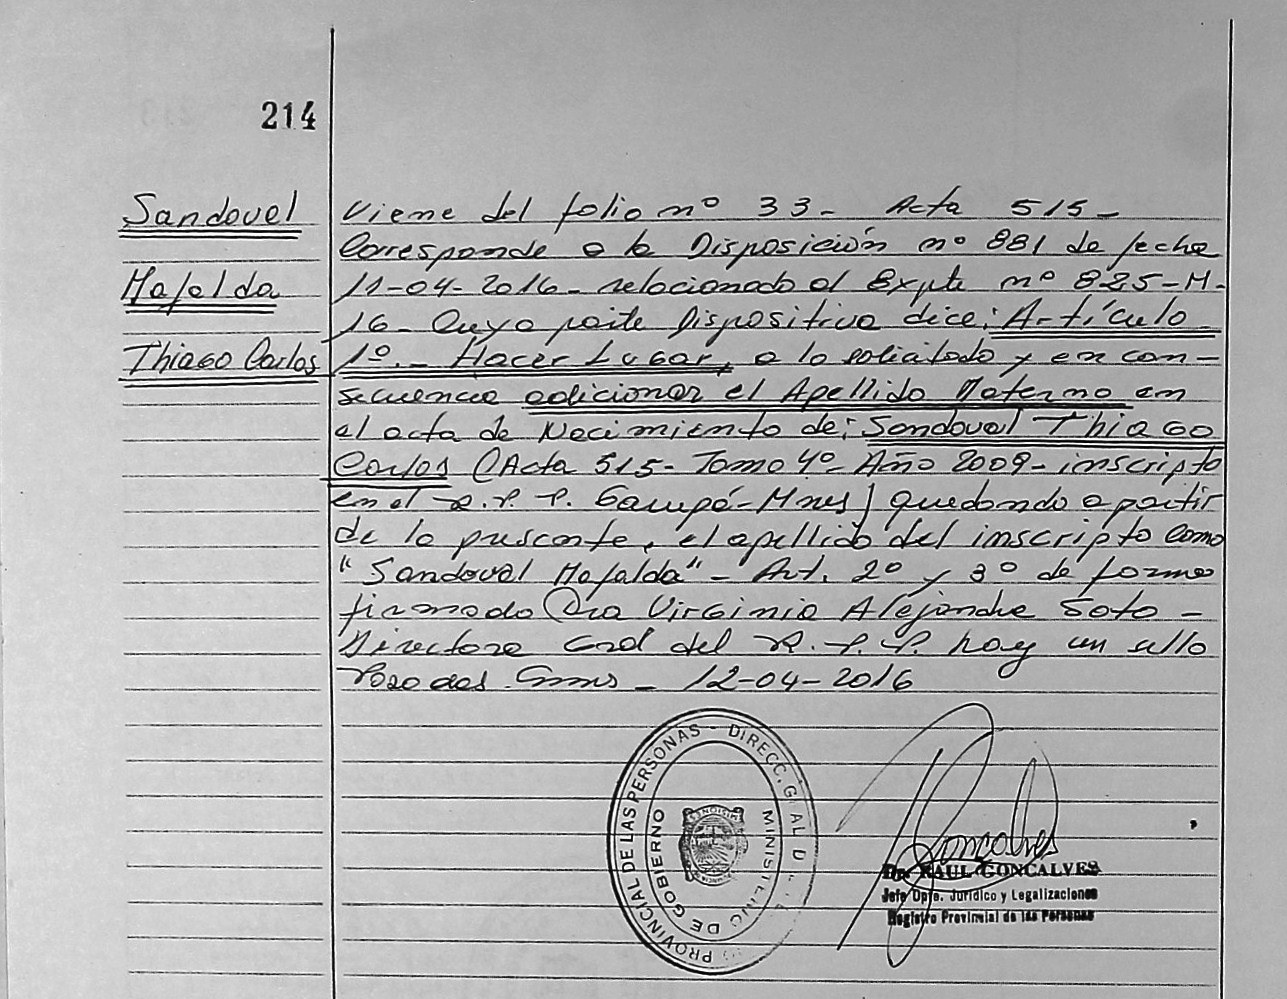 214
Sandoval
Mafalda
Thiago Carlos
Viene del folio nº 33- Acta 515-
Corresponde a la Disposición nº 881 de fecha
11-04-2016- relacionado al Expte nº 825-M-
16- Cuya parte Dispositiva dice: Artículo
1º.- Hacer Lugar, a lo solicitado y en con-
secuencia adicionar el Apellido Materno en
el acta de Nacimiento de: Sandoval Thiago
Carlos (Acta 515- Tomo 4º- Año 2009- inscripto
en el R.P.P. Garupá-Mnes) quedando a partir
de la presente, el apellido del inscripto como
"Sandoval Mafalda"- Art. 2º y 3º de forma
firmado Dra Virginia Alejandra Soto-
Directora Gral del R.P.P. hay un sello
Posadas Mnes- 12-04-2016
PROVINCIAL DE LAS PERSONAS - DIRECC. G AL D
MINISTERIO DE GOBIERNO
MISIONES
Goncalves
Dr. RAUL GONCALVES
Jefe Dpto. Jurídico y Legalizaciones
Registro Provincial de las Personas